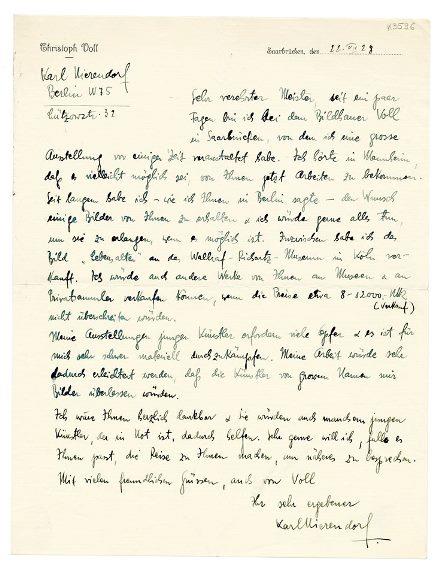 K3536
Christoph Voll
Saarbrücken, den 22. VI 28
Karl Nierendorf
Berlin W 75
Lützowstr. 32
Sehr verehrter Meister, seit ein paar
Tagen bin ich bei dem Bildhauer Voll
in Saarbrücken, von dem ich eine grosse
Ausstellung vor einiger Zeit veranstaltet habe. Ich hörte in Mannheim,
daß es vielleicht möglich sei, von Ihnen jetzt Arbeiten zu bekommen.
Seit langem habe ich – wie ich Ihnen in Berlin sagte – den Wunsch
einige Bilder von Ihnen zu erhalten & ich würde gerne alles tun,
um sie zu erlangen, wenn es möglich ist. Inzwischen habe ich das
Bild " " an das Wallraf-Richartz-Museum in Köln ver-
kauft. Ich würde auch andere Werke von Ihnen an Museen & an
Privatsammler verkaufen können, wenn die Preise etwa 8-12000 Mk
(Verkauf)
nicht überschreiten würden.
Meine Ausstellungen junger Künstler erfordern viele Opfer & es ist für
mich sehr schwer materiell durchzukämpfen. Meine Arbeit würde sehr
dadurch erleichtert werden, daß die Künstler von grossem Namen mir
Bilder überlassen würden.
Ich wäre Ihnen herzlich dankbar & Sie würden auch manchem jungen
Künstler, der in Not ist, dadurch helfen. Sehr gerne will ich, falls es
Ihnen passt, die Reise zu Ihnen machen, um näheres zu besprechen.
Mit vielen freundlichen Grüssen, auch von Voll
Ihr sehr ergebener
Karl Nierendorf.